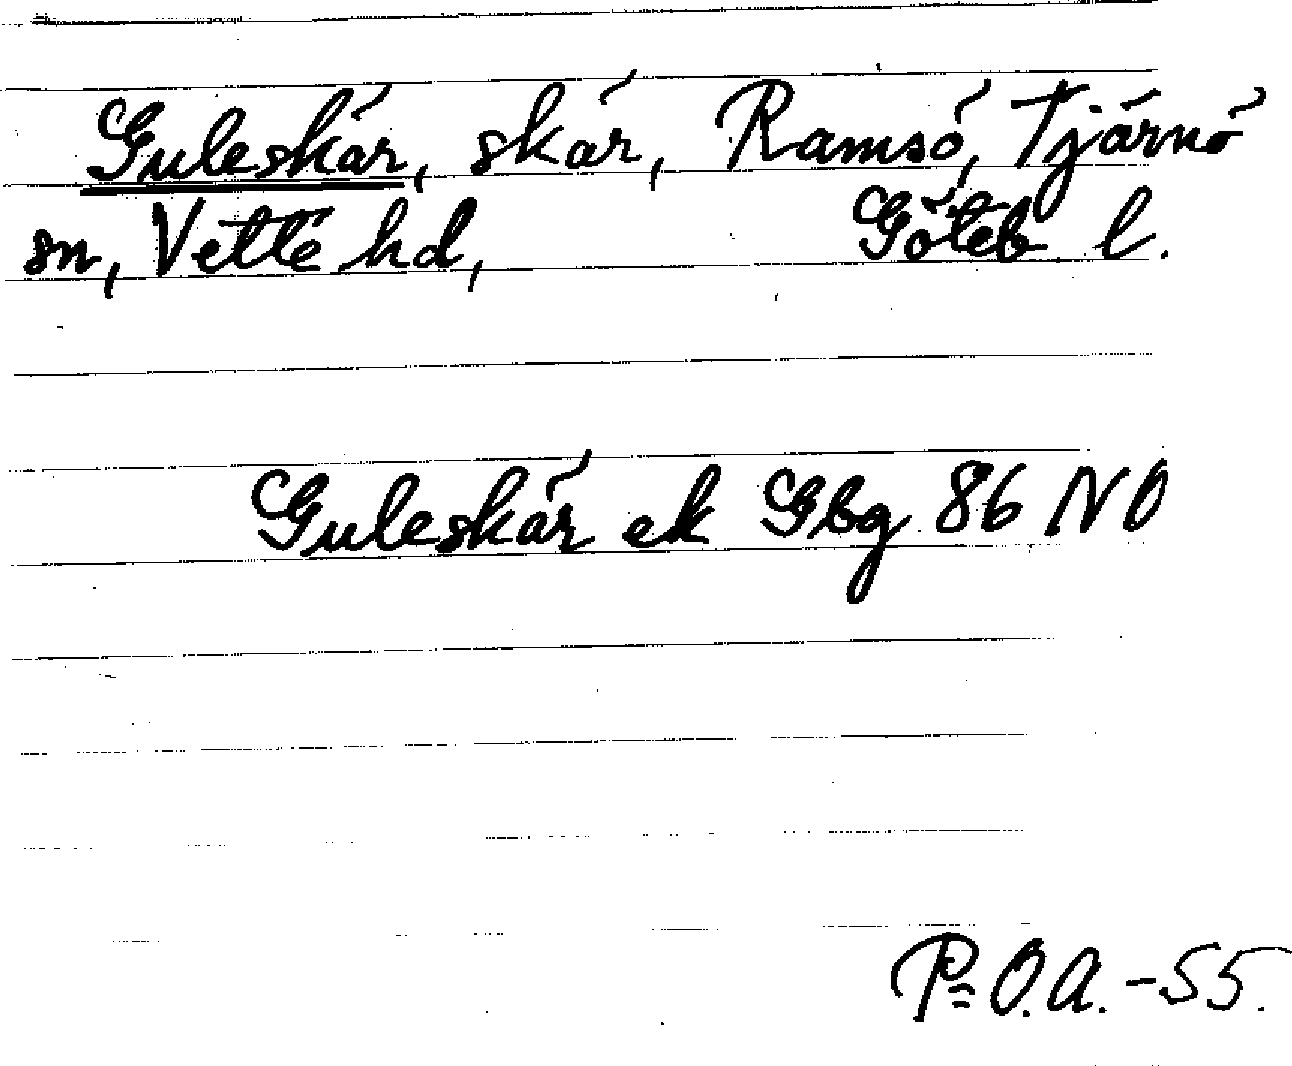 Guleskär, skär, Ramsö, Tjärnö
sn, Vette hd, Göteb. l.
Guleskär ek Gbg 86 NO
P=O.A.-55.